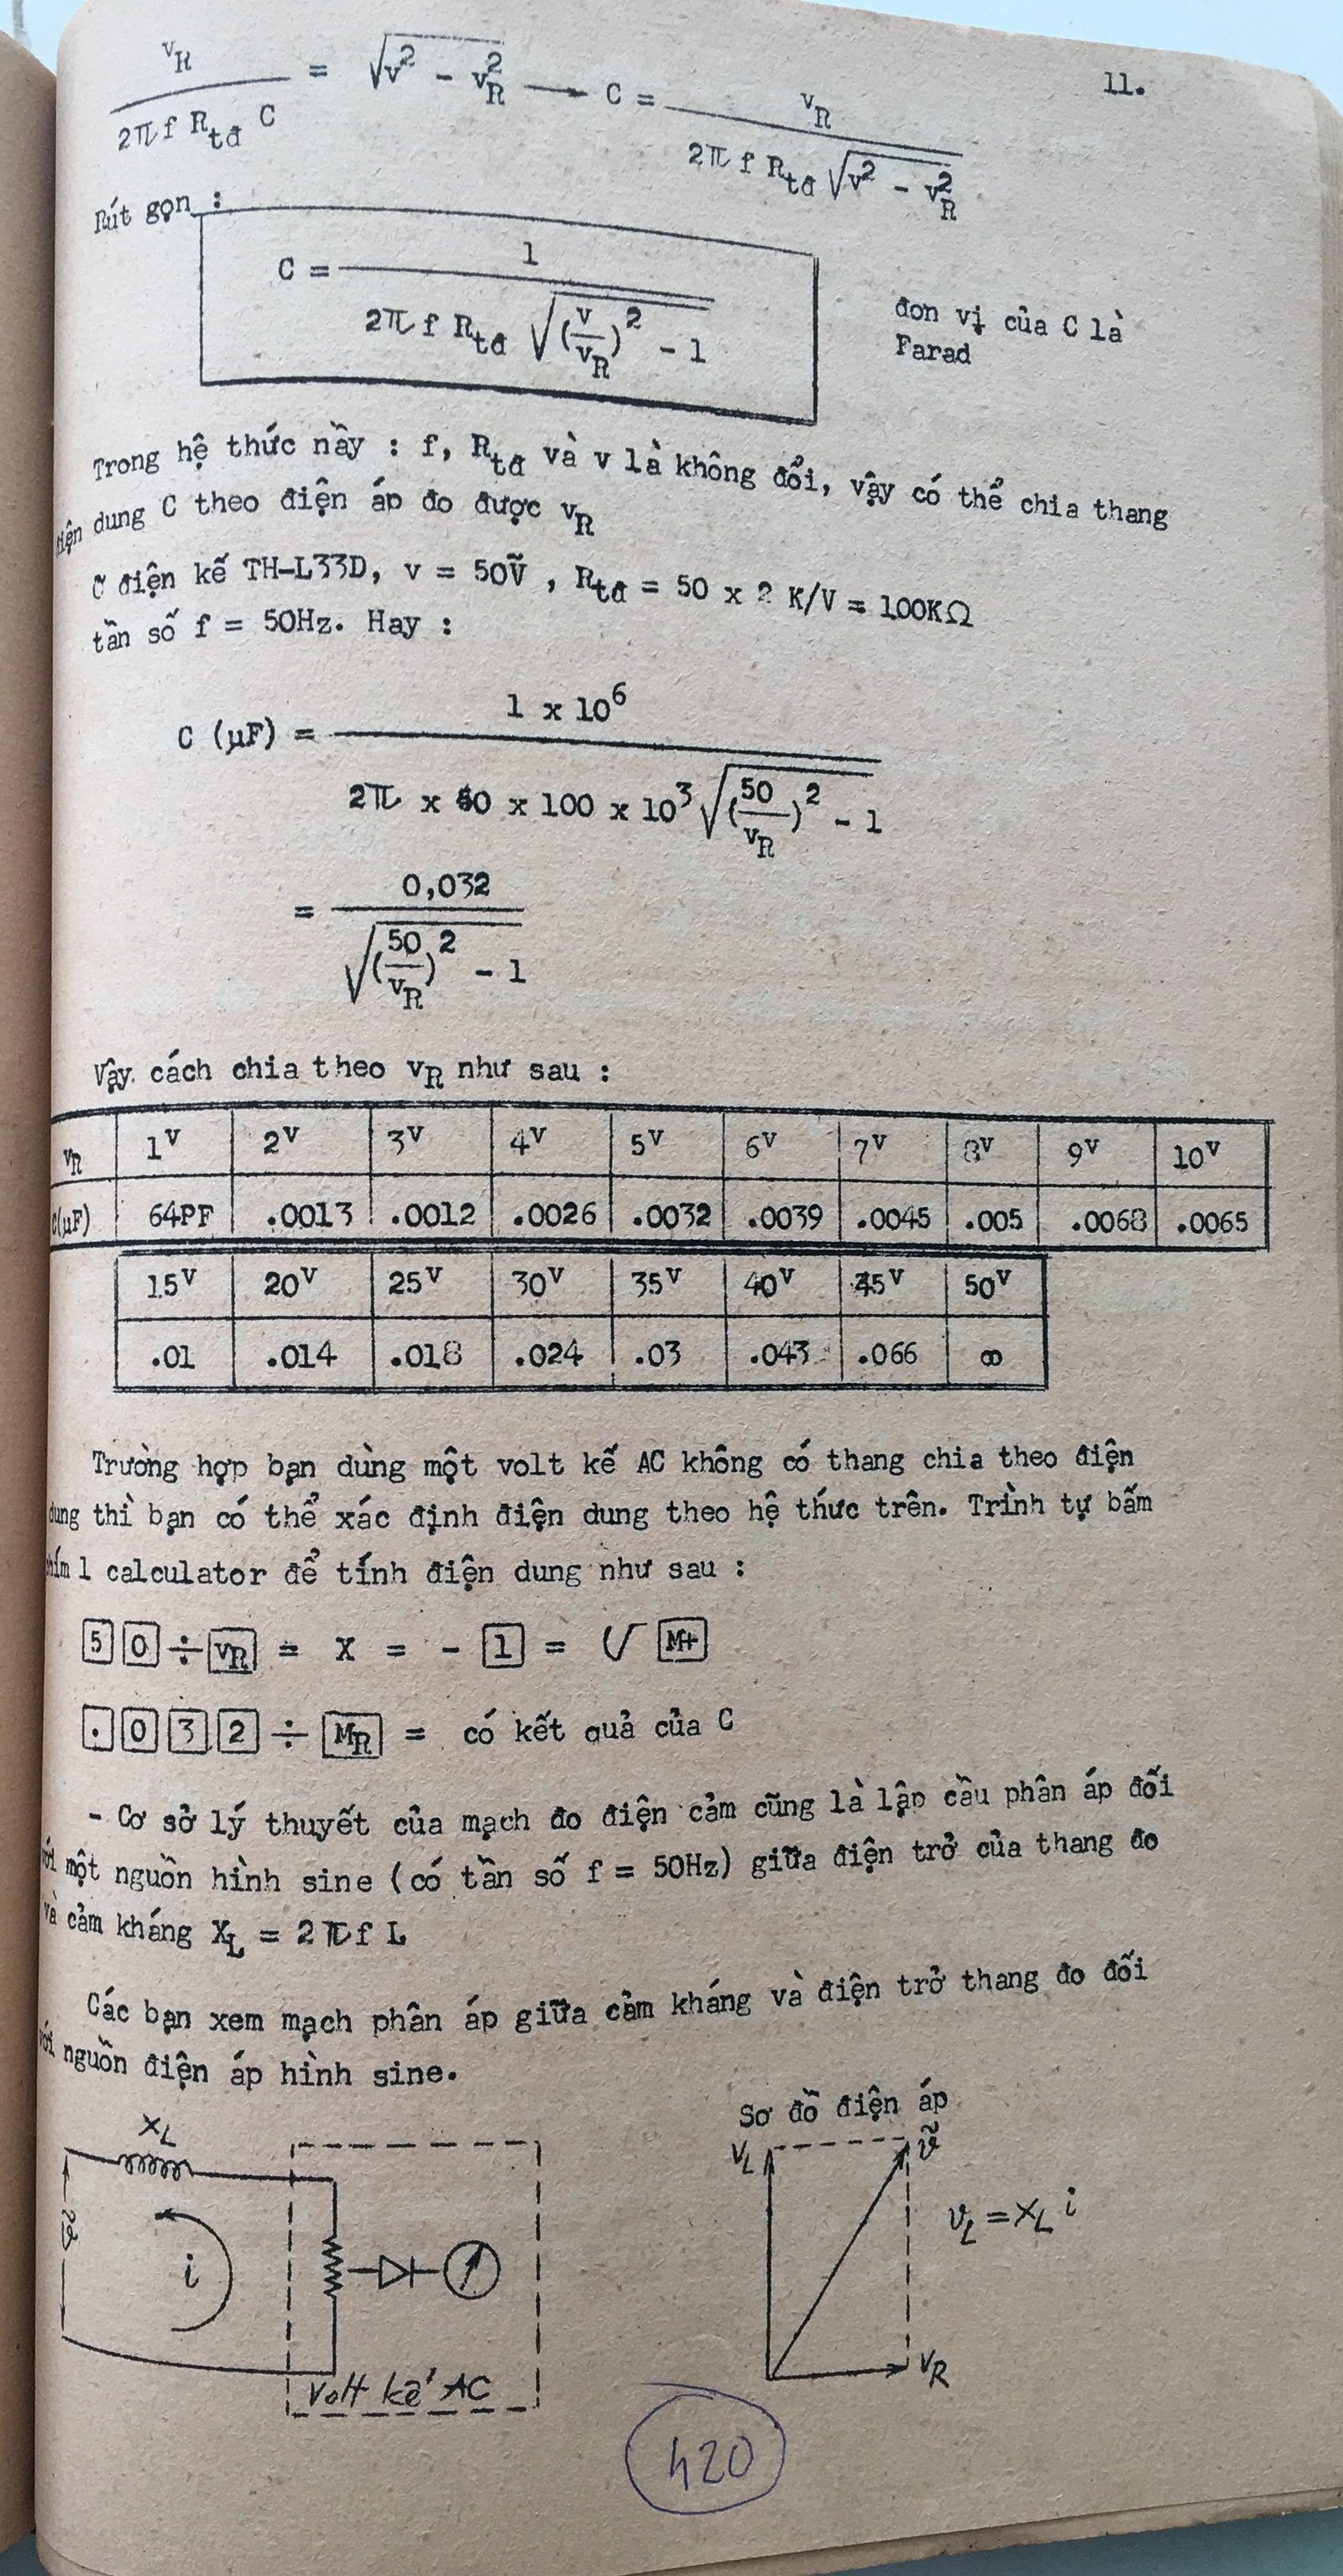 11.
v_R / (2π f R_tđ C) = √(v² - v_R²) → C = v_R / (2π f R_tđ √(v² - v_R²))
Rút gọn :
C = 1 / (2π f R_tđ √((v/v_R)² - 1))
đơn vị của C là
Farad
Trong hệ thức nầy : f, R_tđ và v là không đổi, vậy có thể chia thang
điện dung C theo điện áp đo được v_R
Ở điện kế TH-L33D, v = 50Ṽ , R_tđ = 50 x 2 K/V = 100KΩ
tần số f = 50Hz. Hay :
C (µF) = 1 x 10⁶ / (2π x 50 x 100 x 10³ √((50/v_R)² - 1))
= 0,032 / √((50/v_R)² - 1)
Vậy cách chia theo v_R như sau :
v_R 1V 2V 3V 4V 5V 6V 7V 8V 9V 10V
C(µF) 64PF .0013 .0012 .0026 .0032 .0039 .0045 .005 .0068 .0065
15V 20V 25V 30V 35V 40V 45V 50V
.01 .014 .018 .024 .03 .043 .066 ∞
Trường hợp bạn dùng một volt kế AC không có thang chia theo điện
dung thì bạn có thể xác định điện dung theo hệ thức trên. Trình tự bấm
phím 1 calculator để tính điện dung như sau :
5 0 ÷ v_R = X = - 1 = √ M+
. 0 3 2 ÷ M_R = có kết quả của C
- Cơ sở lý thuyết của mạch đo điện cảm cũng là lập cầu phân áp đối
với một nguồn hình sine (có tần số f = 50Hz) giữa điện trở của thang đo
và cảm kháng X_L = 2πf L
Các bạn xem mạch phân áp giữa cảm kháng và điện trở thang đo đối
với nguồn điện áp hình sine.
Sơ đồ điện áp
X_L
ṽ
i
Volt kế AC
V_L
ṽ
v_L = X_L i
V_R
420